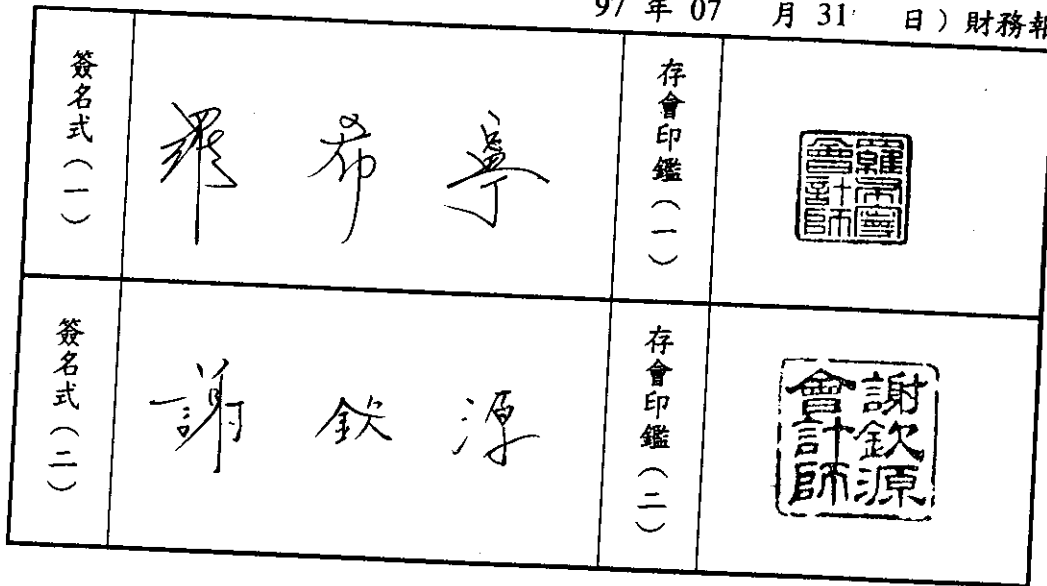 97 年 07 月 31 日）財務報
簽名式（一）
羅 希 寧
存會印鑑（一）
羅希寧
會計師
簽名式（二）
謝 欽 源
存會印鑑（二）
謝欽源
會計師